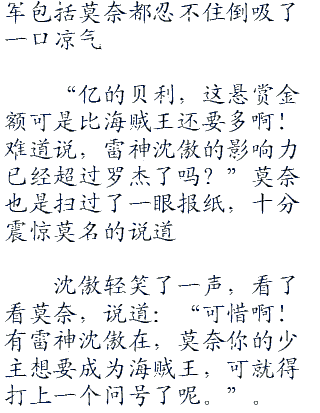 军包括莫奈都忍不住倒吸了
一口凉气
“亿的贝利，这悬赏金
额可是比海贼王还要多啊！
难道说，雷神沈傲的影响力
已经超过罗杰了吗？”莫奈
也是扫过了一眼报纸，十分
震惊莫名的说道
沈傲轻笑了一声，看了
看莫奈，说道：“可惜啊！
有雷神沈傲在，莫奈你的少
主想要成为海贼王，可就得
打上一个问号了呢。”。